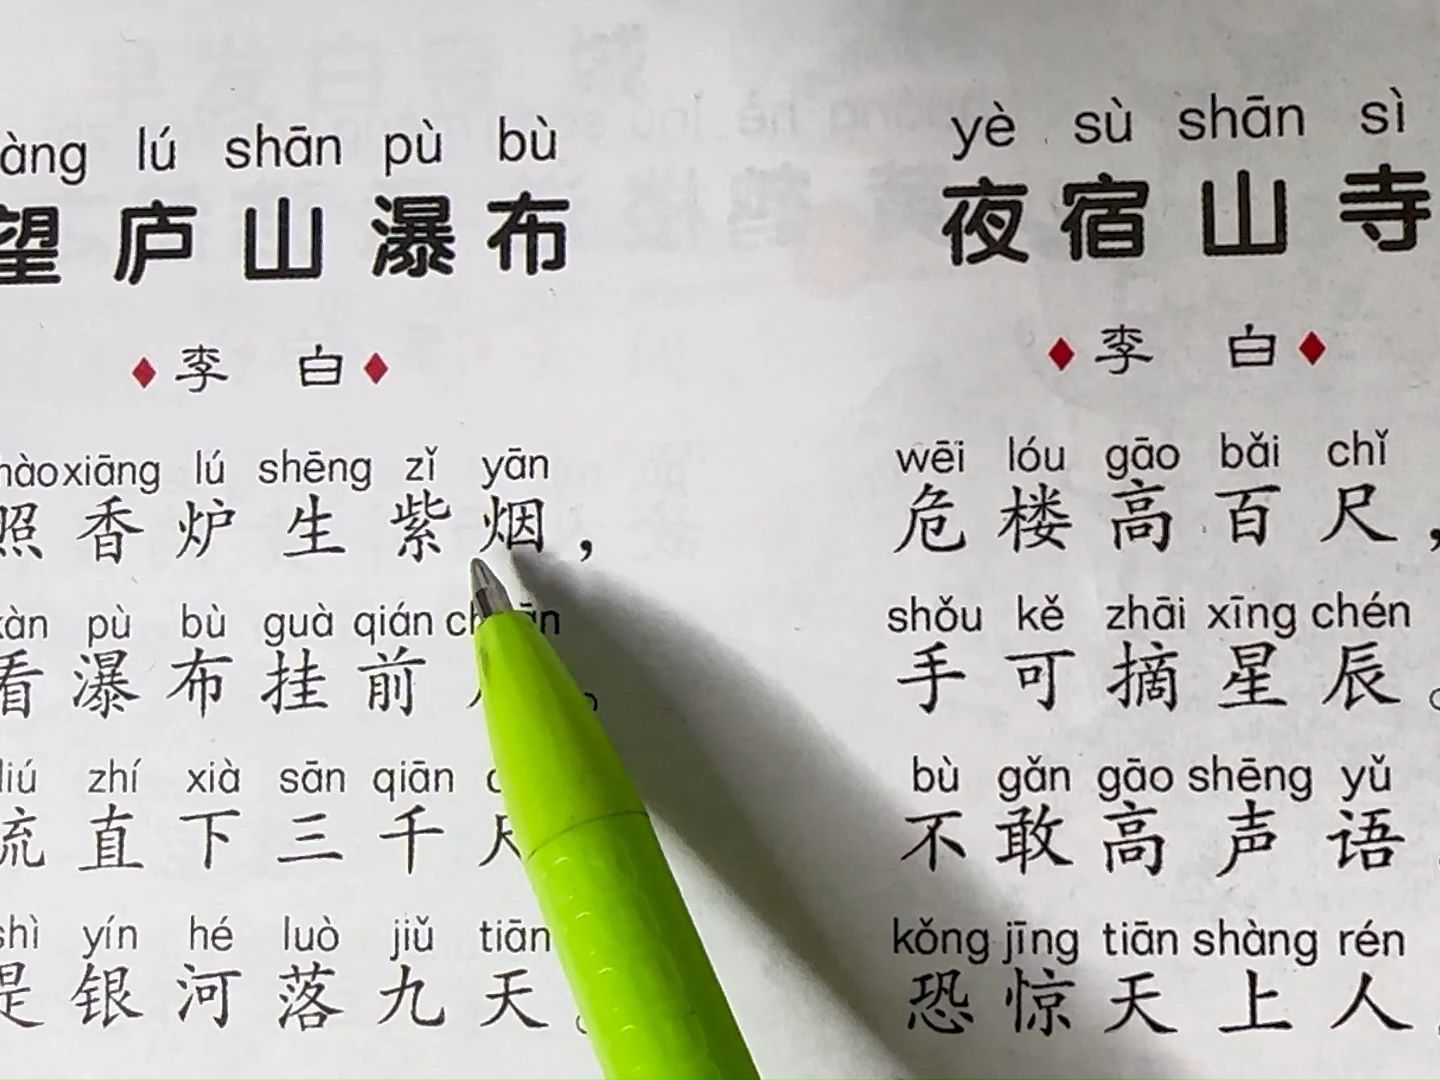 lú shān pù bù
望庐山瀑布
李 白
xiāng lú shēng zǐ yān
照香炉生紫烟，
pù bù guà qián
看瀑布挂前
zhí xià sān qiān
流直下三千
yín hé luò jiǔ tiān
是银河落九天
yè sù shān sì
夜宿山寺
李 白
wēi lóu gāo bǎi chǐ
危楼高百尺，
shǒu kě zhāi xīng chén
手可摘星辰。
bù gǎn gāo shēng yǔ
不敢高声语
kǒng jīng tiān shàng rén
恐惊天上人